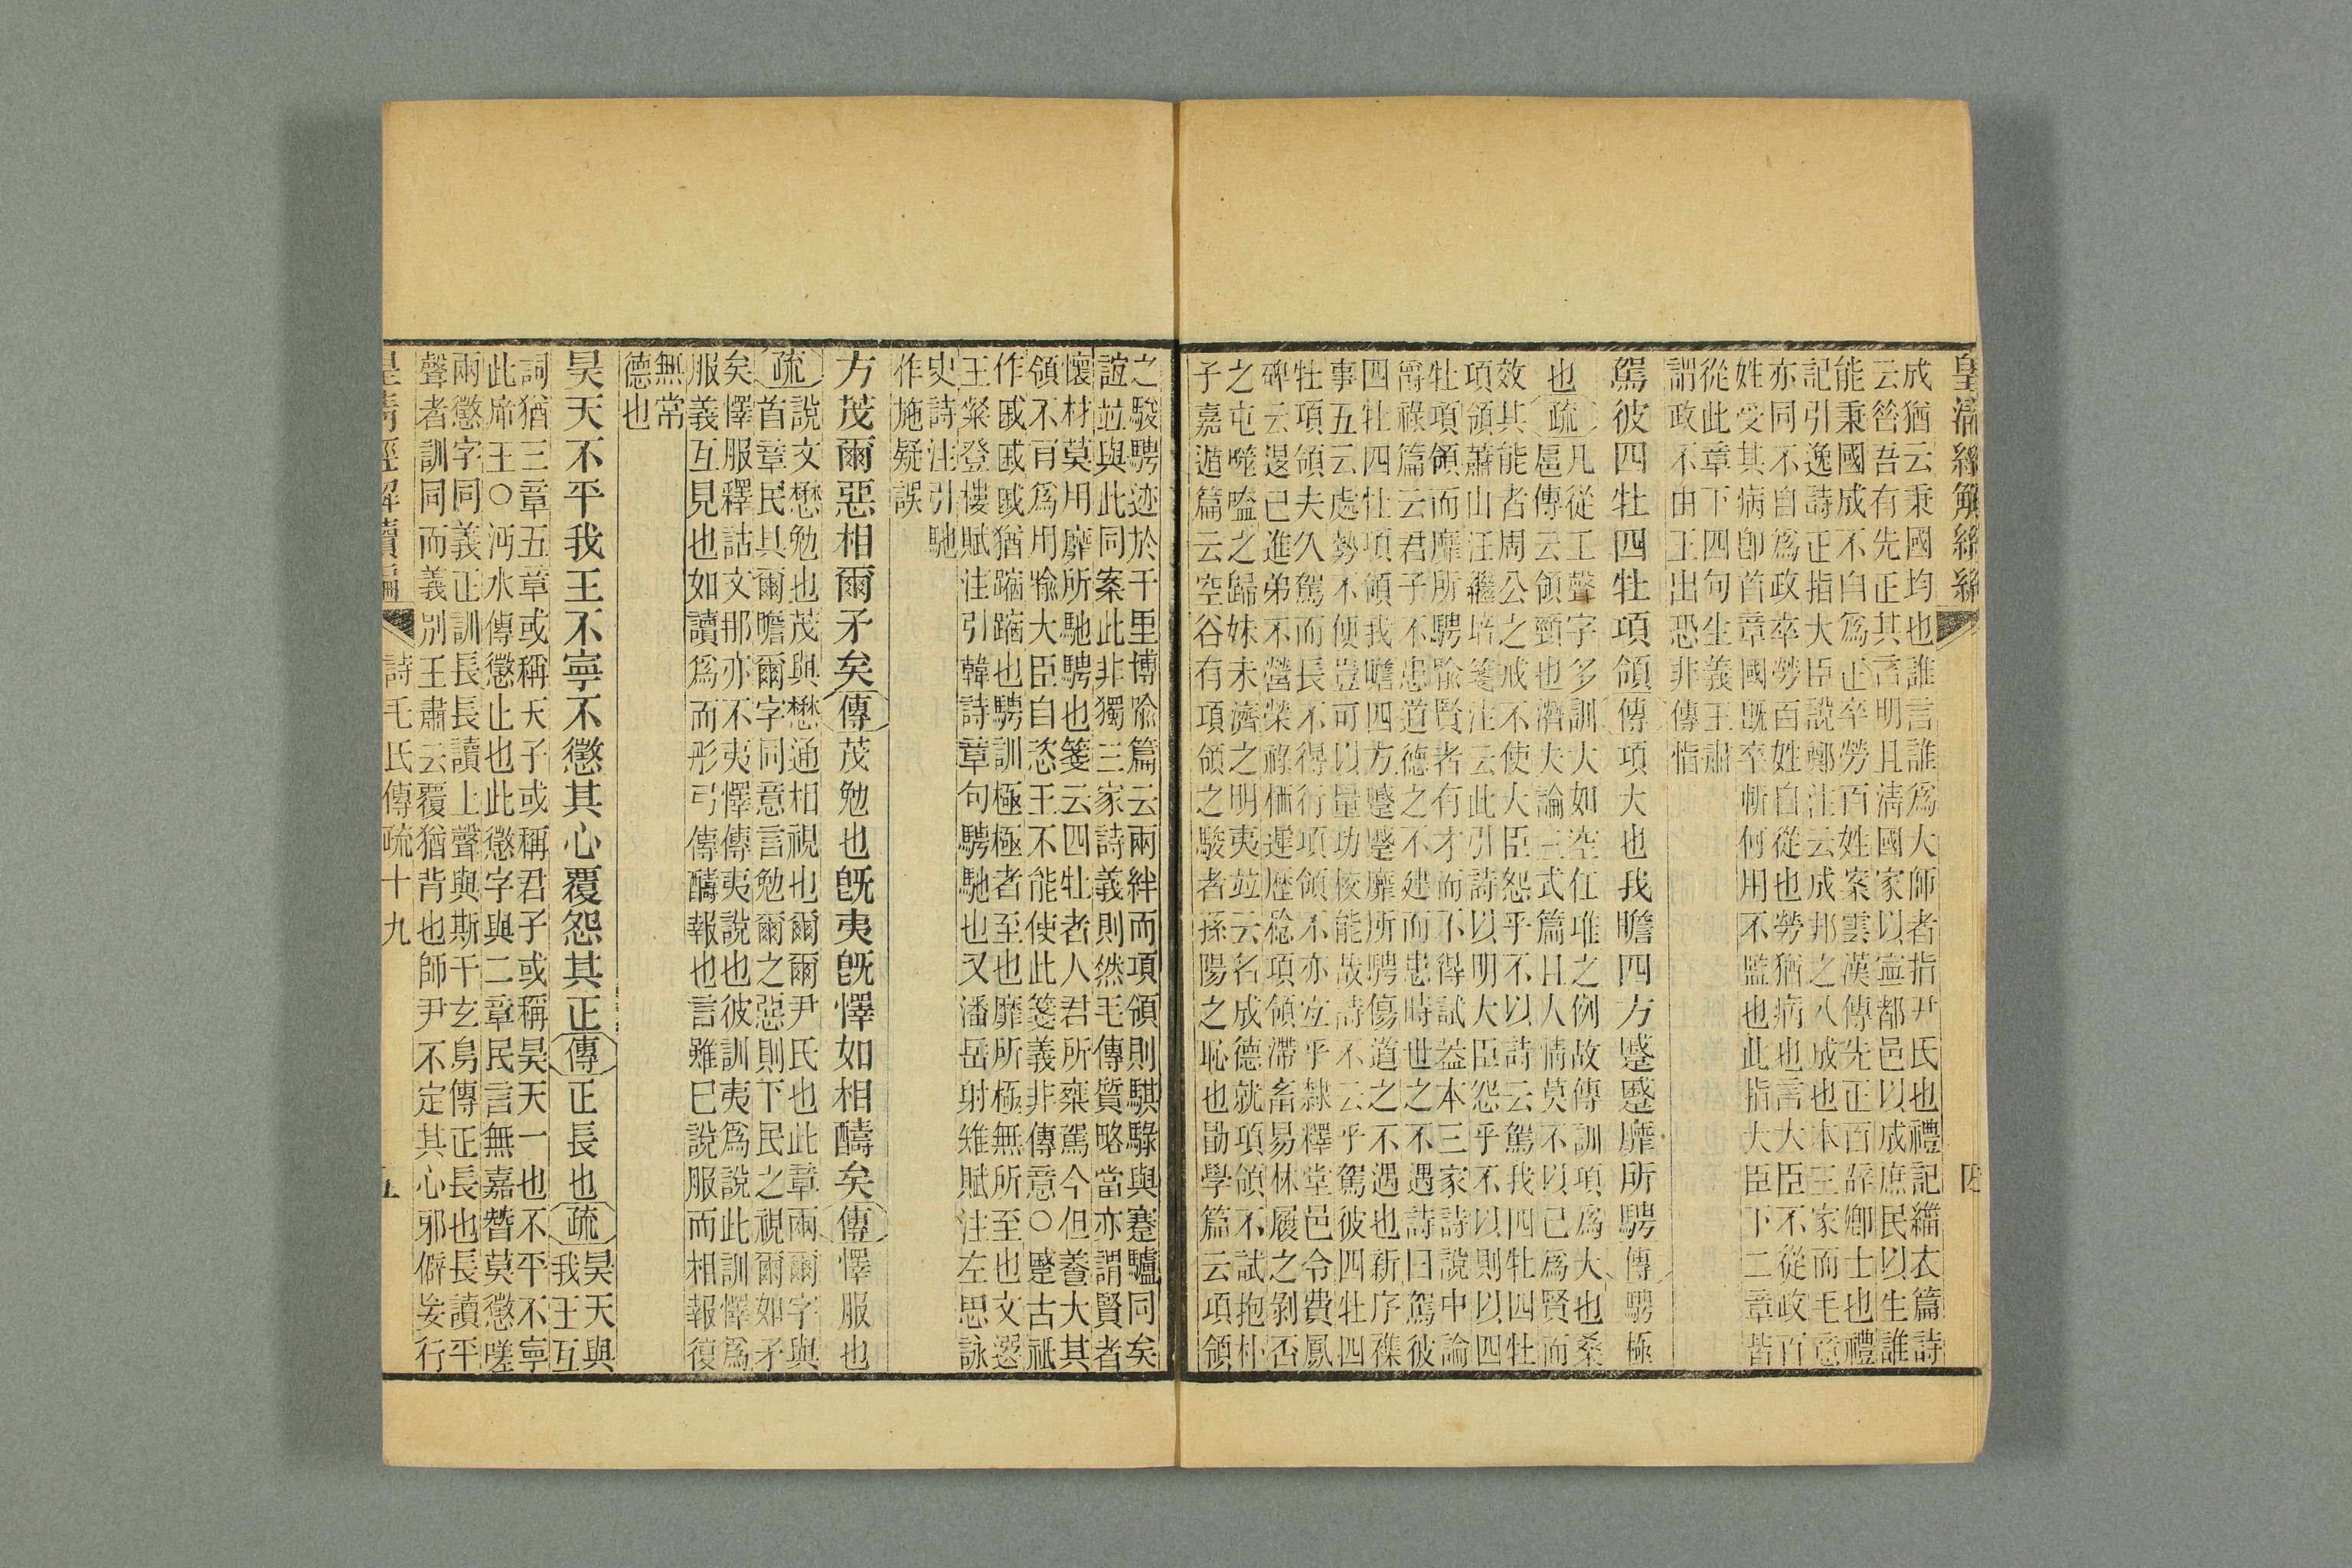 皇清經解續編
成猶云秉國均也誰言誰爲大師者指尹氏也禮記緇衣篇詩
云咎吾有先正其言明且淸國家以寧都邑以成庶民以生誰
能秉國成不自爲正卒勞百姓案雲漢傳先正百辟卿士也禮
記引逸詩正指大臣說鄭注云成邦之八成也本三家而毛意
亦同不自爲政卒勞百姓自從也勞猶病也言大臣不從政百
姓受其病卽首章國旣卒斬何用不監也此指大臣下二章皆
從此章下四句生義王肅
謂政不由王出恐非傳恉
駕彼四牡四牡項領傳項大也我瞻四方蹙蹙靡所騁傳騁極
也疏
凡從工聲字多訓大如空仜堆之例故傳訓項爲大也桑
扈傳云領頸也濟夫論三式篇且人情莫不以己爲賢而
效其能者周公之戒不使大臣怨乎不以詩云駕我四牡四牡
項領蕭山汪繼培箋注云此引詩以明大臣怨乎不以則以四
牡項領而靡所騁喻賢者有才而不得試葢本三家詩說中論
爵祿篇云君子不患道德之不建而患時世之不遇詩曰駕彼
四牡四牡項領我瞻四方蹙蹙靡所騁傷道之不遇也新序襍
事五云處勢不便豈可以量功校能哉詩不云乎駕彼四牡四
牡項領夫久駕而長不得行項領不亦宜乎隸釋堂邑令費鳳
碑云退己進弟不營榮祿栖遲歷稔項領滯畜易林履之剝否
之屯噬嗑之歸妹未濟之明夷竝云名成德就項領不試抱朴
子嘉遁篇云空谷有項領之駿者孫陽之恥也勖學篇云項領
四
之駿騁迹於千里博喻篇云兩絆而項領則騏驥與蹇驢同矣
誼竝與此同案此非獨三家詩義則然毛傳質略當亦謂賢者
懷材莫用靡所馳騁也箋云四牡者人君所椉駕今但養大其
領不肎爲用喻大臣自恣王不能使此箋義非傳意○蹙古祗
作戚戚戚猶蹜蹜也騁訓極極者至也靡所極無所至也文選
王粲登樓賦注引韓詩章句騁馳也又潘岳射雉賦注左思詠
史詩注引馳
作施疑誤
方茂爾惡相爾矛矣傳茂勉也旣夷旣懌如相醻矣傳懌服也
疏
說文懋勉也茂與懋通相視也爾爾尹氏也此章兩爾字與
首章民具爾瞻爾字同意言勉爾之惡則下民之視爾如矛
矣懌服釋詁文那亦不夷懌傳夷說也彼訓夷爲說此訓懌爲
服義互見也如讀爲而彤弓傳醻報也言雖已說服而相報復
無常
德也
昊天不平我王不寧不懲其心覆怨其正傳正長也疏
昊天與
我王互
詞猶三章五章或稱天子或稱君子或稱昊天一也不平不寧
此席王○沔水傳懲止也此懲字與二章民言無嘉朁莫懲嗟
兩懲字同義正訓長長讀上聲與斯干玄鳥傳正長也長讀平
聲者訓同而義別王肅云覆猶背也師尹不定其心邪僻妄行
皇清經解續編
詩毛氏傳疏十九
五